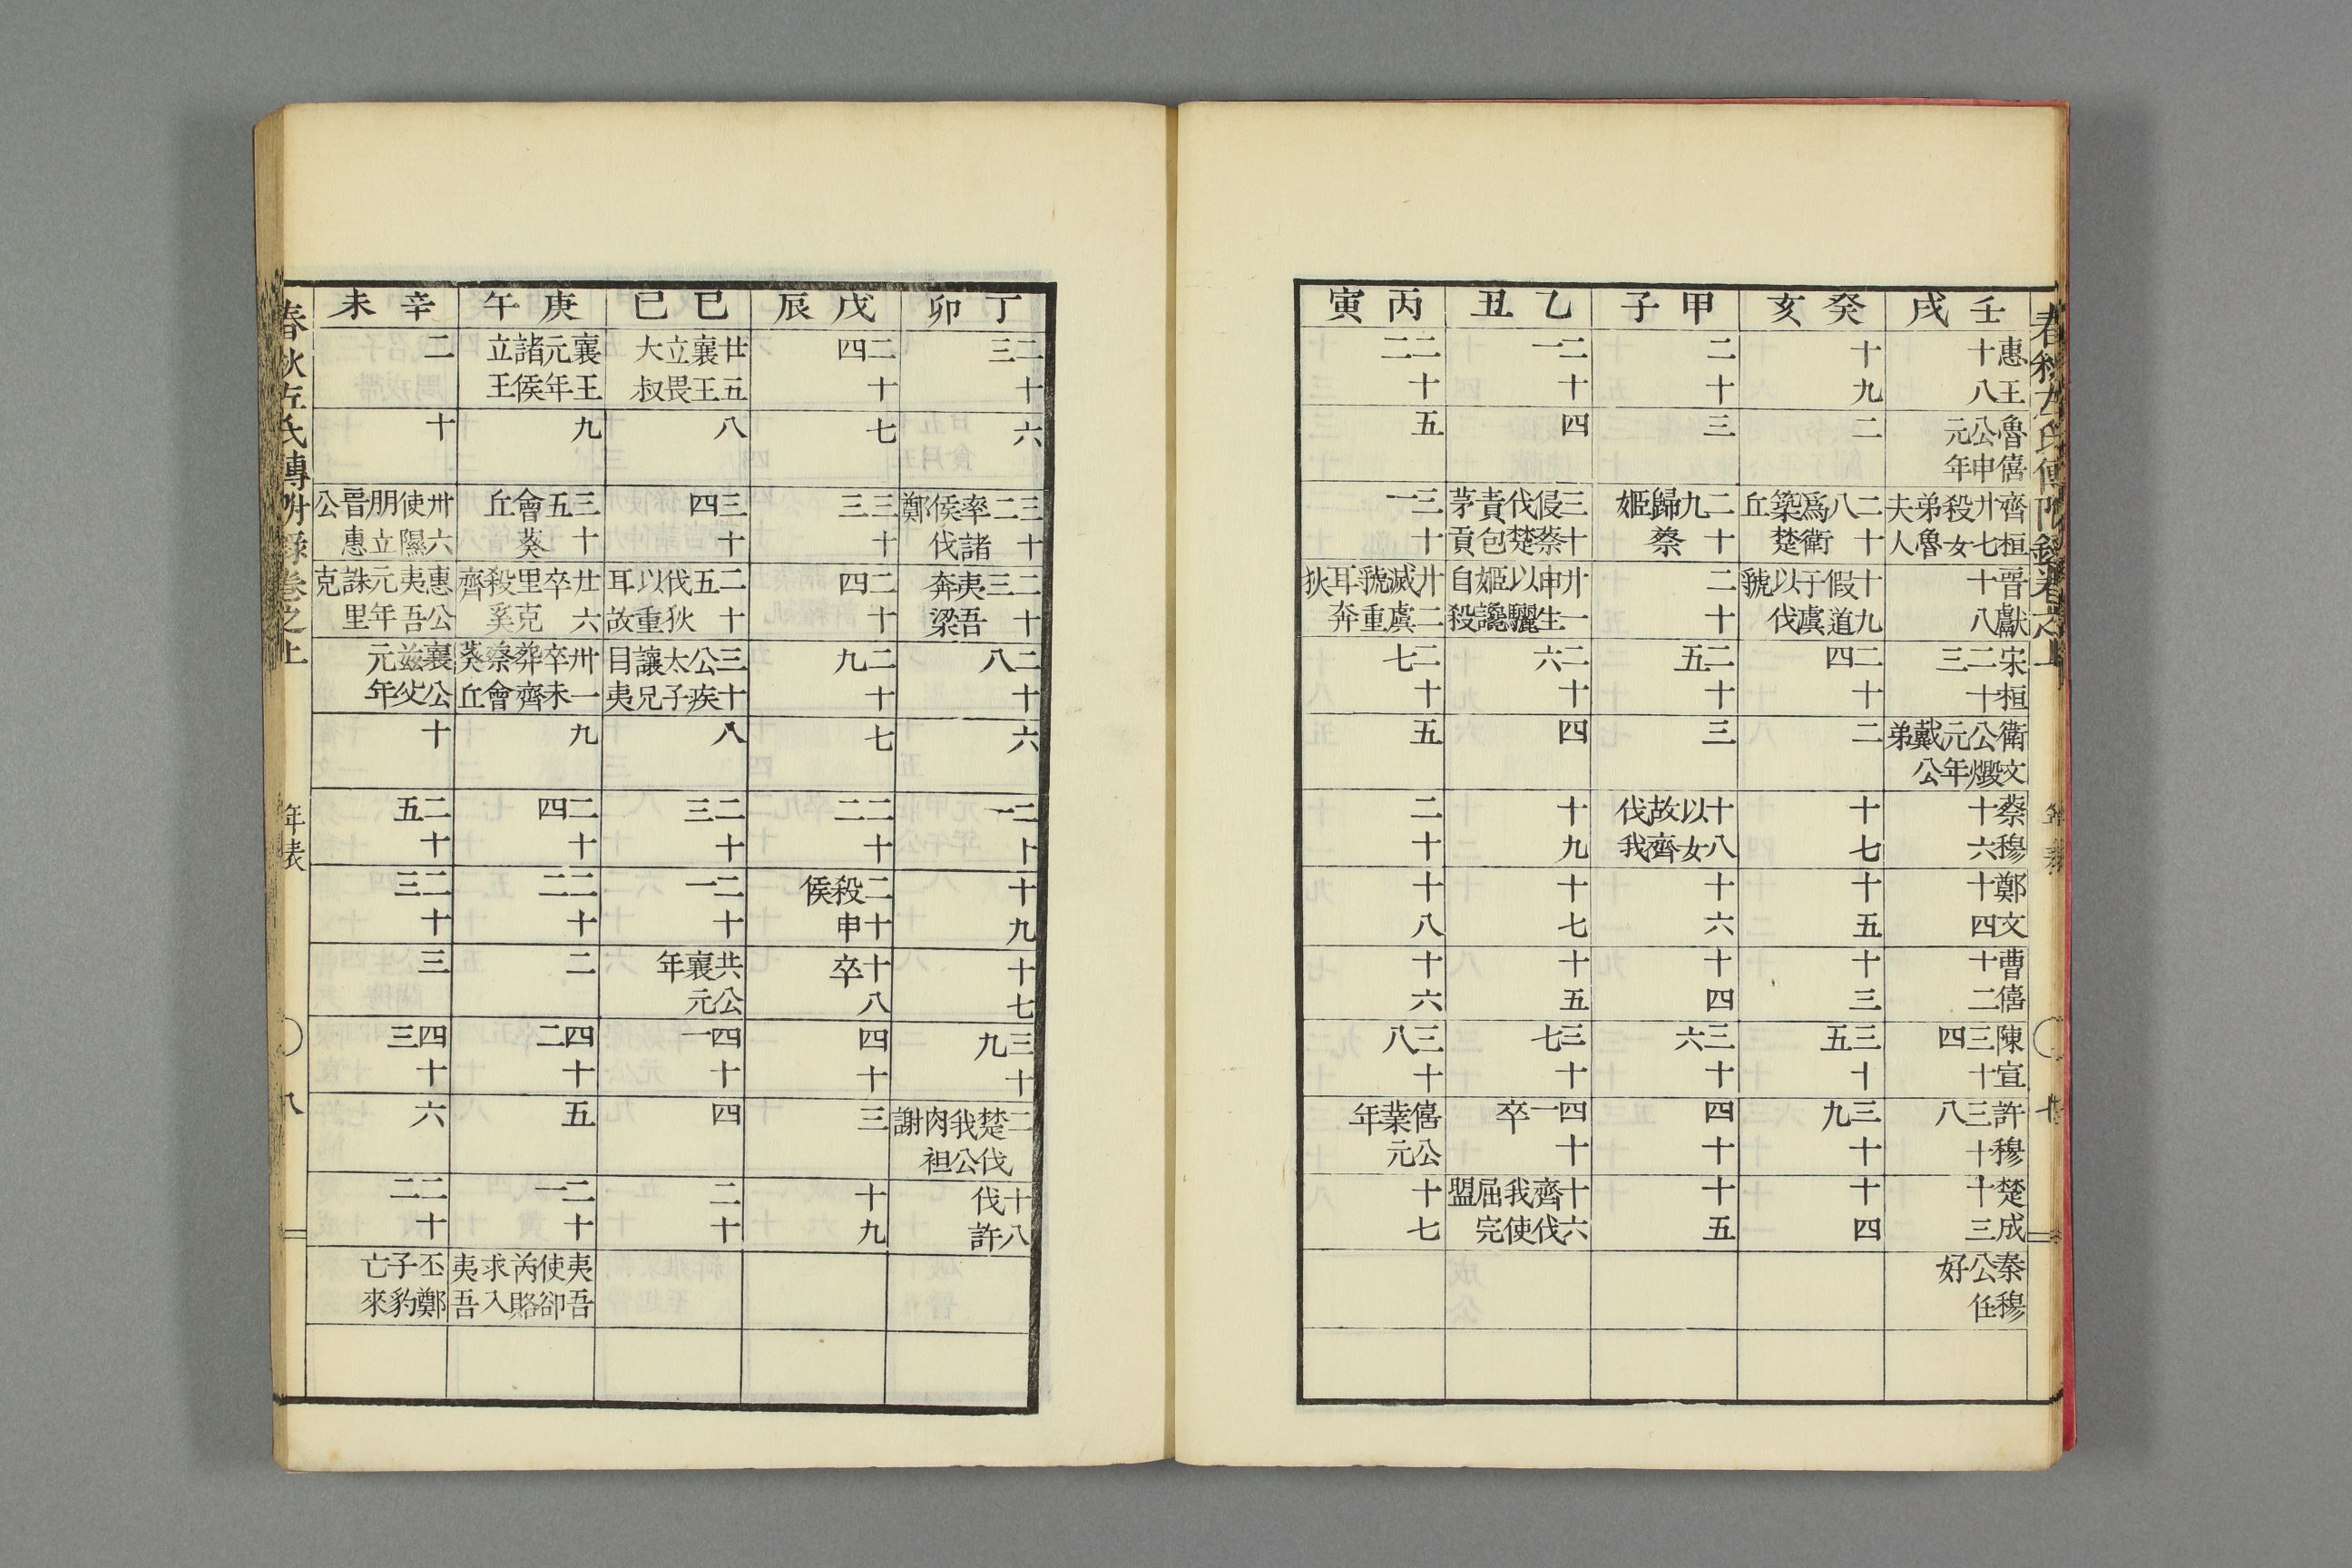 春秋左氏傳附錄卷之上
年表
七
壬戌
惠王十八
魯僖公申元年
齊桓廿七殺女弟魯夫人
晉獻十八
宋桓二十三
衛文公燬元年戴公弟
蔡穆十六
鄭文十四
曹僖十二
陳宣三十四
許穆三十八
楚成十三
秦穆公任好
癸亥
十九
二
二十八爲衛築楚丘
十九假道于虞以伐虢
二十四
二
十七
十五
十三
三十五
三十九
十四
甲子
二十
三
二十九歸蔡姬
二十
二十五
三
十八以女故齊伐我
十六
十四
三十六
四十
十五
乙丑
二十一
四
三十侵蔡伐楚責包茅貢
廿一申生以驪姬讒自殺
二十六
四
十九
十七
十五
三十七
四十一卒
十六齊伐我使屈完盟
丙寅
二十二
五
三十一
廿二滅虞虢重耳奔狄
二十七
五
二十
十八
十六
三十八
僖公業元年
十七
丁卯
二十三
六
三十二率諸侯伐鄭
二十三夷吾奔梁
二十八
六
二十一
十九
十七
三十九
二楚伐我公肉袒謝
十八伐許
戊辰
二十四
七
三十三
二十四
二十九
七
二十二
二十殺申侯
十八卒
四十
三
十九
己巳
廿五襄王立畏大叔
八
三十四
二十五伐狄以重耳故
三十公疾太子讓兄目夷
八
二十三
二十一
共公襄元年
四十一
四
二十
庚午
襄王元年諸侯立王
九
三十五會葵丘
廿六卒里克殺奚齊
卅一卒未葬齊祭會葵丘
九
二十四
二十二
二
四十二
五
二十一
夷吾使卻芮賂求入夷吾
辛未
二
十
卅六使隰朋立晉惠公
惠公夷吾元年誅里克
襄公茲父元年
十
二十五
二十三
三
四十三
六
二十二
丕鄭子豹亡來
春秋左氏傳附錄卷之上
年表
八